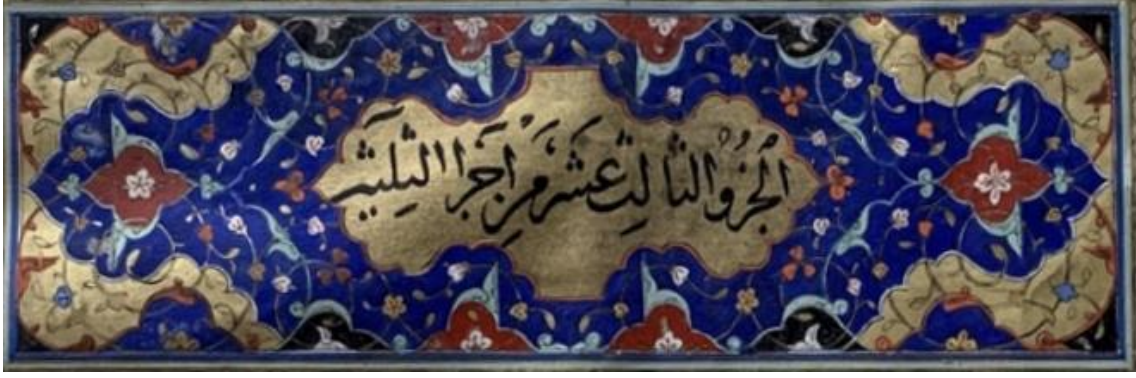 الجزؤ الثالث عشر من اجزا الثلثين